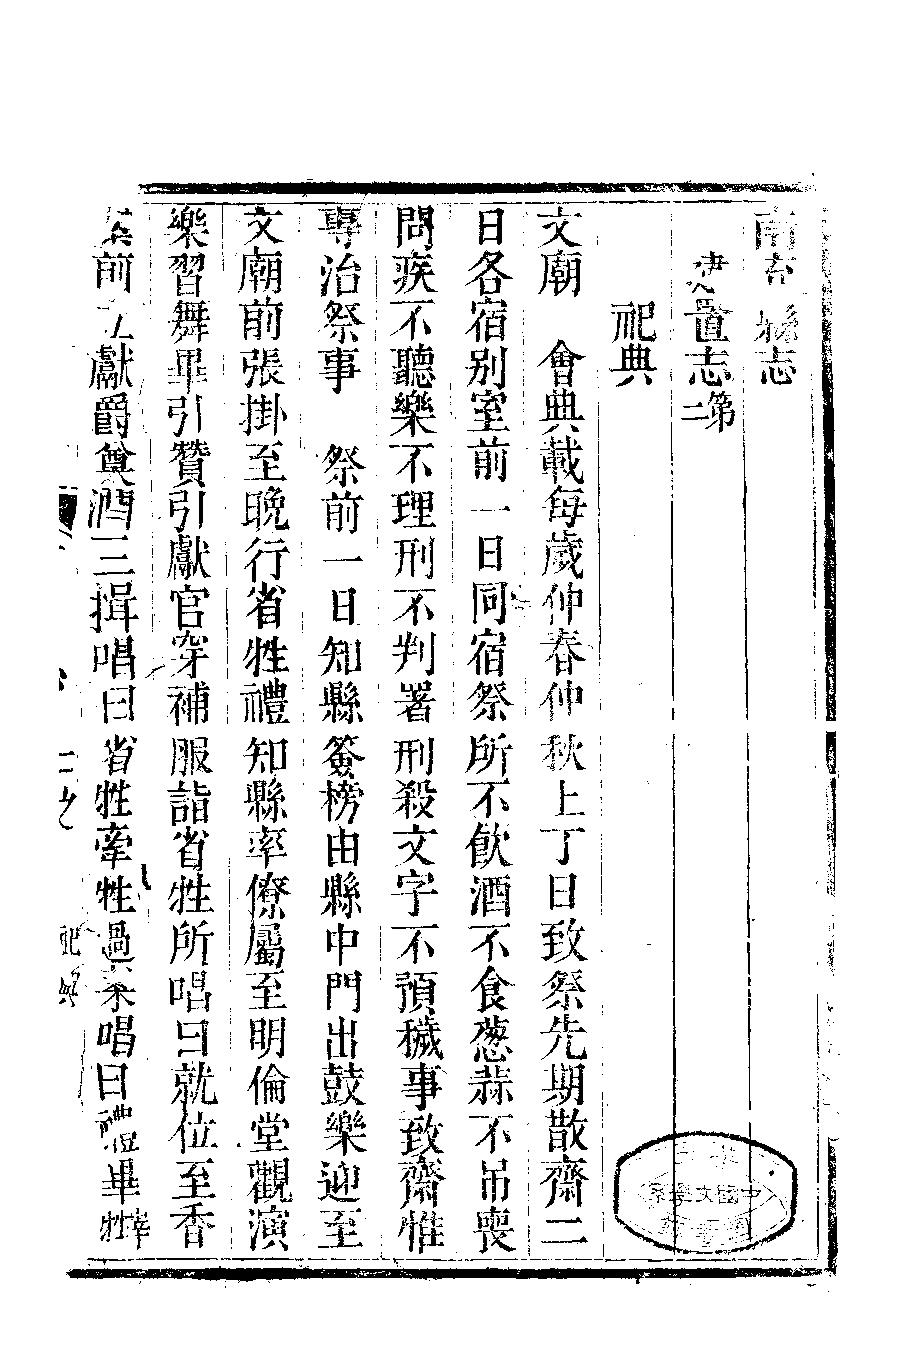 南 縣志
建置志第二
祀典
文廟 會典載每歲仲春仲秋上丁日致祭先期散齋二
日各宿别室前一日同宿祭所不飲酒不食葱蒜不吊喪
問疾不聽樂不理刑不判署刑殺文字不預穢事致齋惟
專治祭事 祭前一日知縣簽榜由縣中門出鼓樂迎至
文廟前張掛至晚行省牲禮知縣率僚屬至明倫堂觀演
樂習舞畢引贊引獻官穿補服詣省牲所唱曰就位至香
案前 獻爵奠酒三揖唱曰省牲牽牲過案唱曰禮畢宰牲
祀典
中國文學系